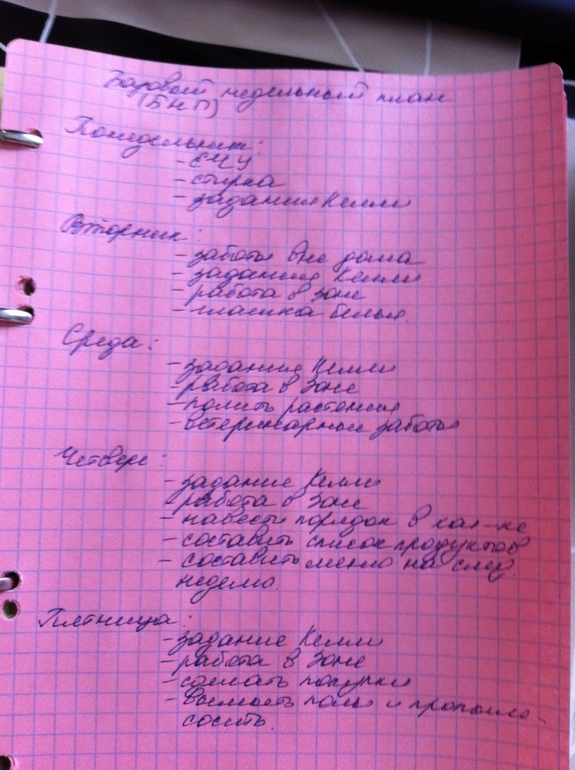 Базовый недельный план
(БНП)
Понедельник:
- ЕЧУ
- стирка
- задания Келли
Вторник:
- заботы вне дома
- задание Келли
- работа в зоне
- глажка белья.
Среда:
- задание Келли
- работа в зоне
- полить растения
- ветеринарные заботы
Четверг:
- задание Келли
- работа в зоне
- навести порядок в хол-ке
- составить список продуктов
- составить меню на след.
неделю.
Пятница:
- задание Келли
- работа в зоне
- сделать покупки
- вымыть полы и пропыло-
сосить.